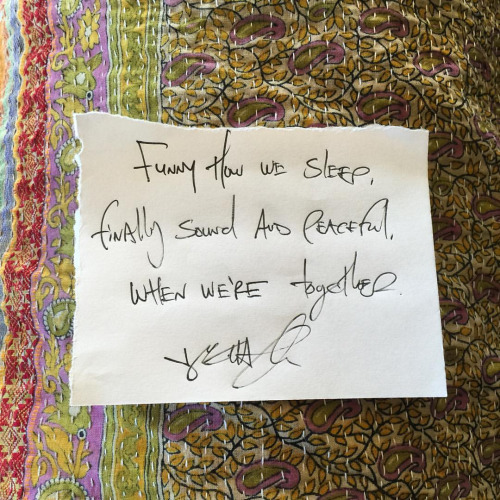 Funny How we sleep,
finally sound And peaceful,
when we're together.